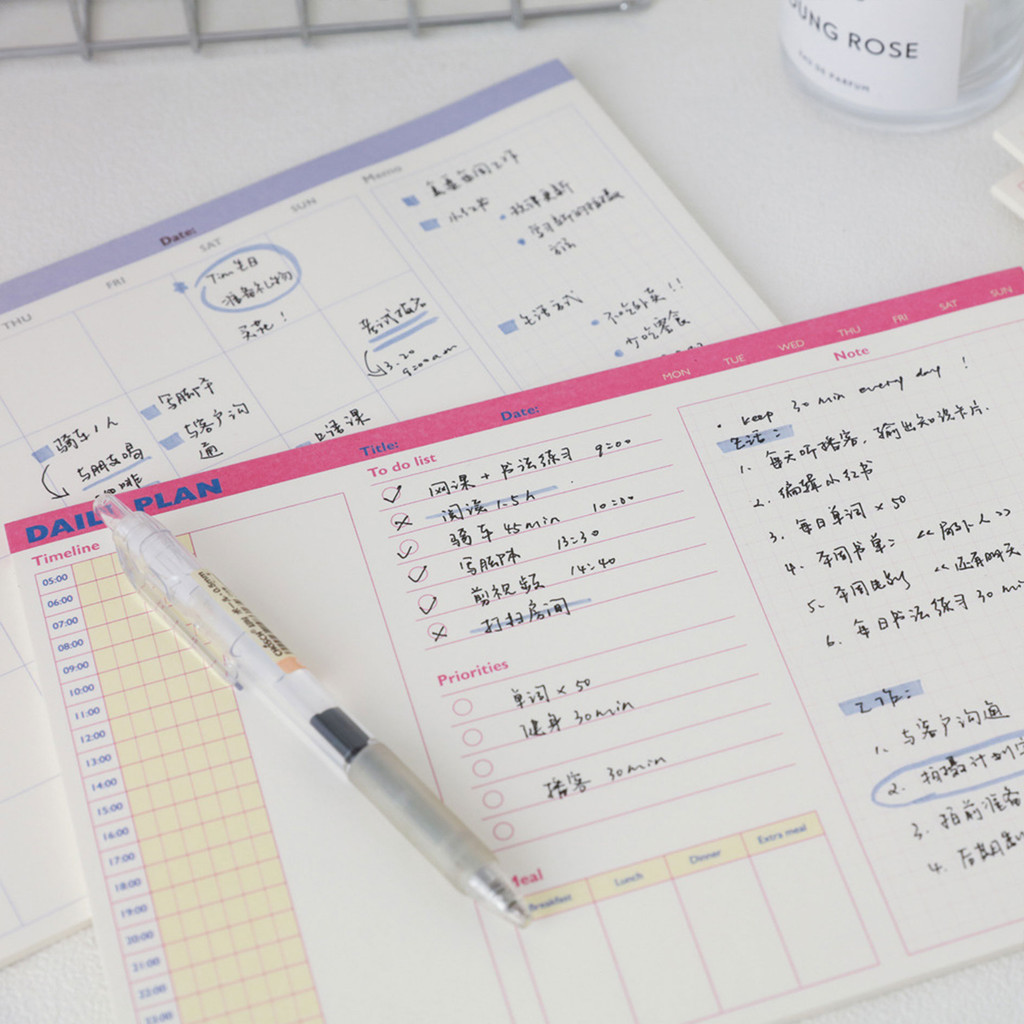 YOUNG ROSE
EAU DE PARFUM
Date:
THU
FRI
SAT
SUN
Memo
Tim生日
准备礼物
买花！
考试报名
3.20
9:00am
写脚本
与客户沟
通
骑车1人
与朋友喝
咖啡
口语课
小红书
学习新的拍摄
生活方式
不吃外卖！！
少吃零食
DAILY PLAN
Title:
Date:
MON
TUE
WED
THU
FRI
SAT
SUN
Timeline
05:00
06:00
07:00
08:00
09:00
10:00
11:00
12:00
13:00
14:00
15:00
16:00
17:00
18:00
19:00
20:00
21:00
22:00
23:00
To do list
网课 + 书法练习 9:00
阅读 1.5h
骑车 45min 10:00
写脚本 13:30
剪视频 14:40
打扫房间
Priorities
单词 × 50
健身 30min
播客 30min
Meal
Breakfast
Lunch
Dinner
Extra meal
Note
• keep 30 min every day !
生活：
1. 每天听播客，输出知识卡片.
2. 编辑小红书
3. 每日单词 × 50
4. 本周书单：《局外人》
5. 本周电影《还有明天
6. 每日书法练习 30 min
工作：
1. 与客户沟通
2. 拍摄计划
3. 拍前准备
4. 后期